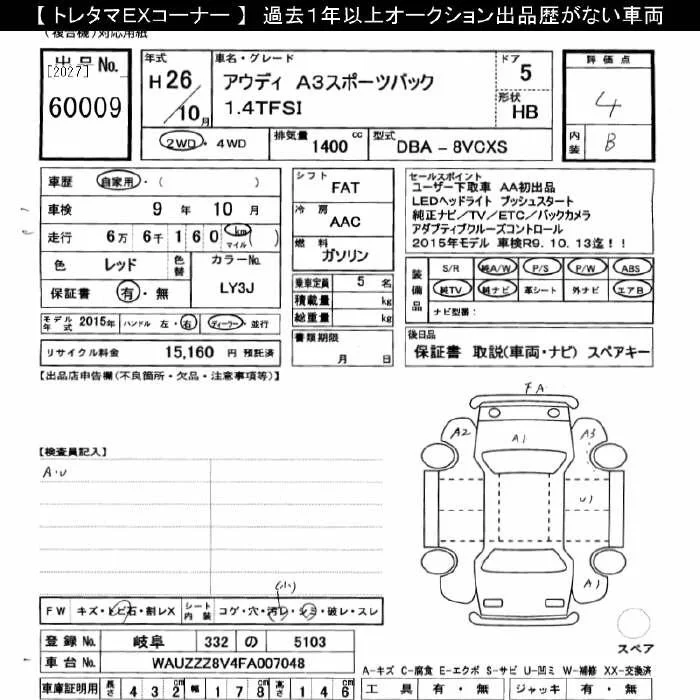 【 トレタマEXコーナー 】 過去1年以上オークション出品歴がない車両
(複合機)対応用紙
出品No.
[2027]
60009
年式
H 26
10月
車名・グレード
アウディ A3スポーツバック
1.4TFSI
ドア
5
形状
HB
評価点
4
内装
B
2WD・4WD
排気量
1400 cc
型式
DBA - 8VCXS
車歴 自家用・( )
車検 9年 10月
走行 6万 6千 160 km マイル ( )
色 レッド
色替
カラーNo.
LY3J
保証書 有・無
モデル年式 2015年 ハンドル 左・右 ディーラー・並行
リサイクル料金 15,160 円 預託済
シフト
FAT
冷房
AAC
燃料
ガソリン
乗車定員 5 名
積載量 kg
総重量 kg
書類期限
月 日
セールスポイント
ユーザー下取車 AA初出品
LEDヘッドライト プッシュスタート
純正ナビ/TV/ETC/バックカメラ
アダプティブクルーズコントロール
2015年モデル 車検R9.10.13迄!!
装備品
S/R 純A/W P/S P/W ABS
純TV 純ナビ 革シート 外ナビ エアB
ナビ型番:
後日品
保証書 取説(車両・ナビ) スペアキー
【出品店申告欄(不良箇所・欠品・注意事項等)】
【検査員記入】
A・U
FA
A2
A1
A3
U1
A1
スペア
FW キズ・トビ石・割レX
シート内装 コゲ・穴・汚レ・シミ・破レ・スレ
(小)
登録No. 岐阜 332 の 5103
車台No. WAUZZZ8V4FA007048
車庫証明用 長さ 432cm 幅 178cm 高さ 146cm
A-キズ C-腐食 E-エクボ S-サビ U-凹ミ W-補修 XX-交換済
工具 有・無 ジャッキ 有・無